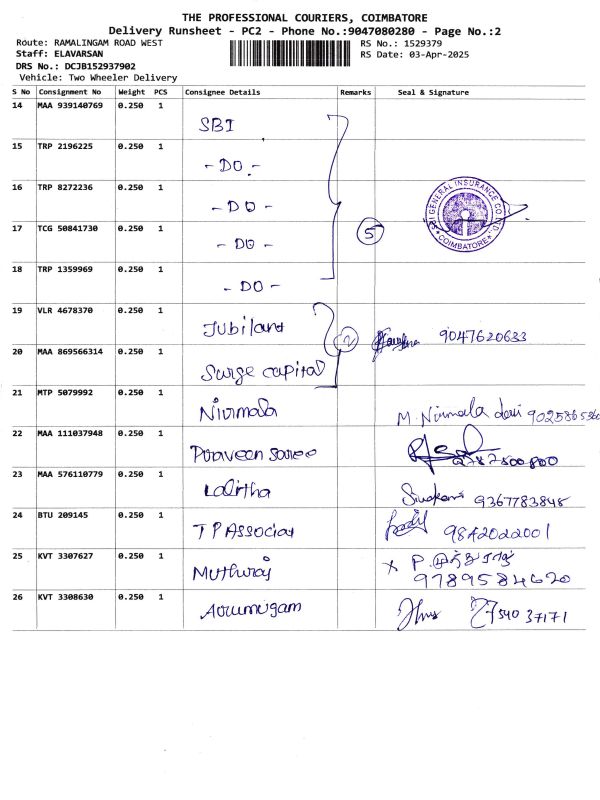 THE PROFESSIONAL COURIERS, COIMBATORE
Delivery Runsheet - PC2 - Phone No.:9047080280 - Page No.:2
Route: RAMALINGAM ROAD WEST RS No.: 1529379
Staff: ELAVARSAN RS Date: 03-Apr-2025
DRS No.: DCJB152937902
Vehicle: Two Wheeler Delivery
S No Consignment No Weight PCS Consignee Details Remarks Seal & Signature
14 MAA 939140769 0.250 1 SBI
15 TRP 2196225 0.250 1 - DO -
16 TRP 8272236 0.250 1 - DO -
GENERAL INSURANCE CO. LTD. COIMBATORE
17 TCG 50841730 0.250 1 - DO - 5
18 TRP 1359969 0.250 1 - DO -
19 VLR 4678370 0.250 1 Jubilant 2 9047620633
20 MAA 869566314 0.250 1 Surge capital
21 MTP 5079992 0.250 1 Nirmala M. Nirmala devi
22 MAA 111037948 0.250 1 Praveen
23 MAA 576110779 0.250 1 Lalitha 9367783848
24 BTU 209145 0.250 1 T P Associat 9842022001
25 KVT 3307627 0.250 1 Muthuraj X P.
9789584620
26 KVT 3308630 0.250 1 Arumugam 37171